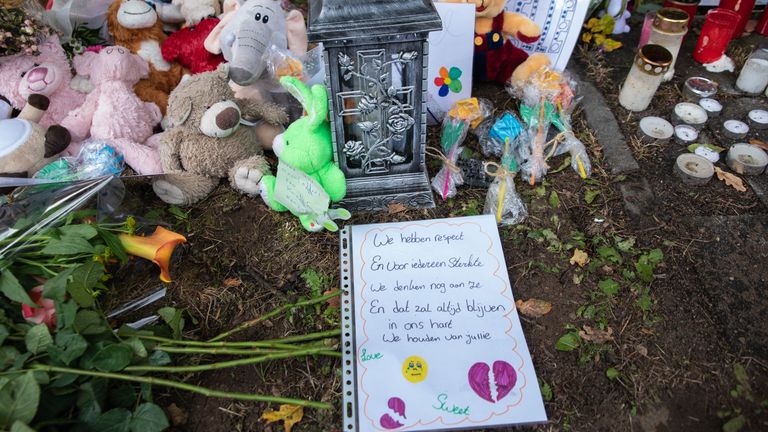 We hebben respect
En voor iedereen Sterkte
We denken nog aan ze
En dat zal altijd blijven
in ons hart
We houden van jullie
Love
Sweet